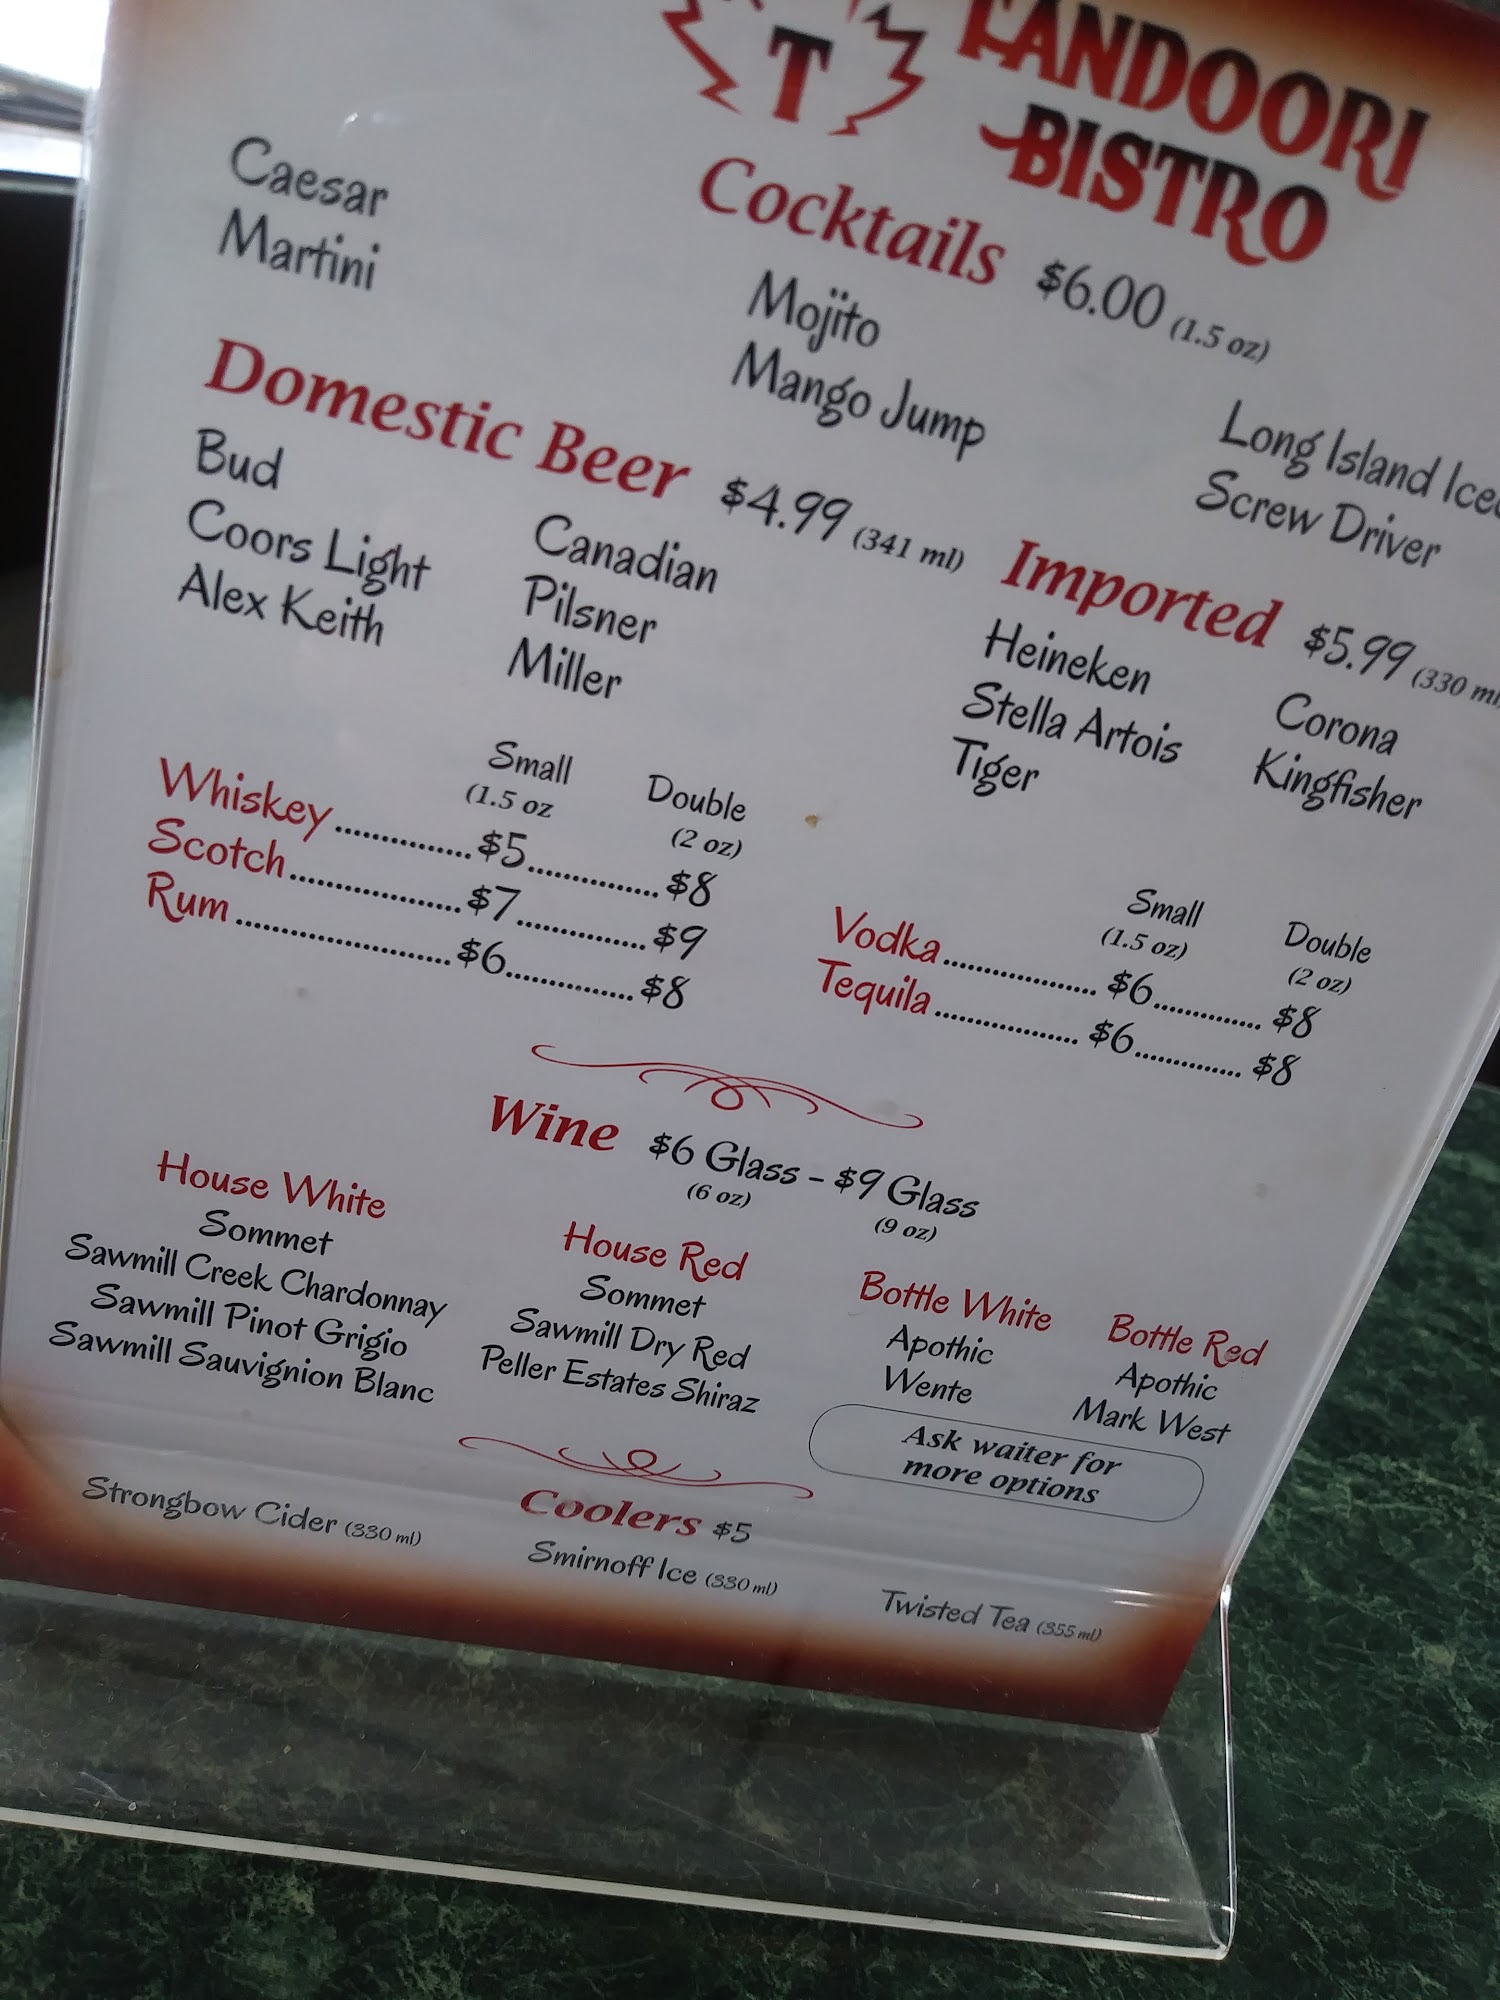 T
TANDOORI
BISTRO
Cocktails $6.00 (1.5 oz)
Caesar
Martini
Mojito
Mango Jump
Long Island Iced
Screw Driver
Domestic Beer $4.99 (341 ml)
Bud
Coors Light
Alex Keith
Canadian
Pilsner
Miller
Imported $5.99 (330 ml)
Heineken
Stella Artois
Tiger
Corona
Kingfisher
Small Double
(1.5 oz (2 oz)
Whiskey...............$5...............$8
Scotch...................$7...............$9
Rum........................$6...............$8
Small Double
(1.5 oz) (2 oz)
Vodka...................$6..............$8
Tequila..................$6..............$8
Wine $6 Glass - $9 Glass
(6 oz) (9 oz)
House White
Sommet
Sawmill Creek Chardonnay
Sawmill Pinot Grigio
Sawmill Sauvignion Blanc
House Red
Sommet
Sawmill Dry Red
Peller Estates Shiraz
Bottle White
Apothic
Wente
Bottle Red
Apothic
Mark West
Ask waiter for
more options
Coolers $5
Strongbow Cider (330 ml)
Smirnoff Ice (330 ml)
Twisted Tea (355 ml)